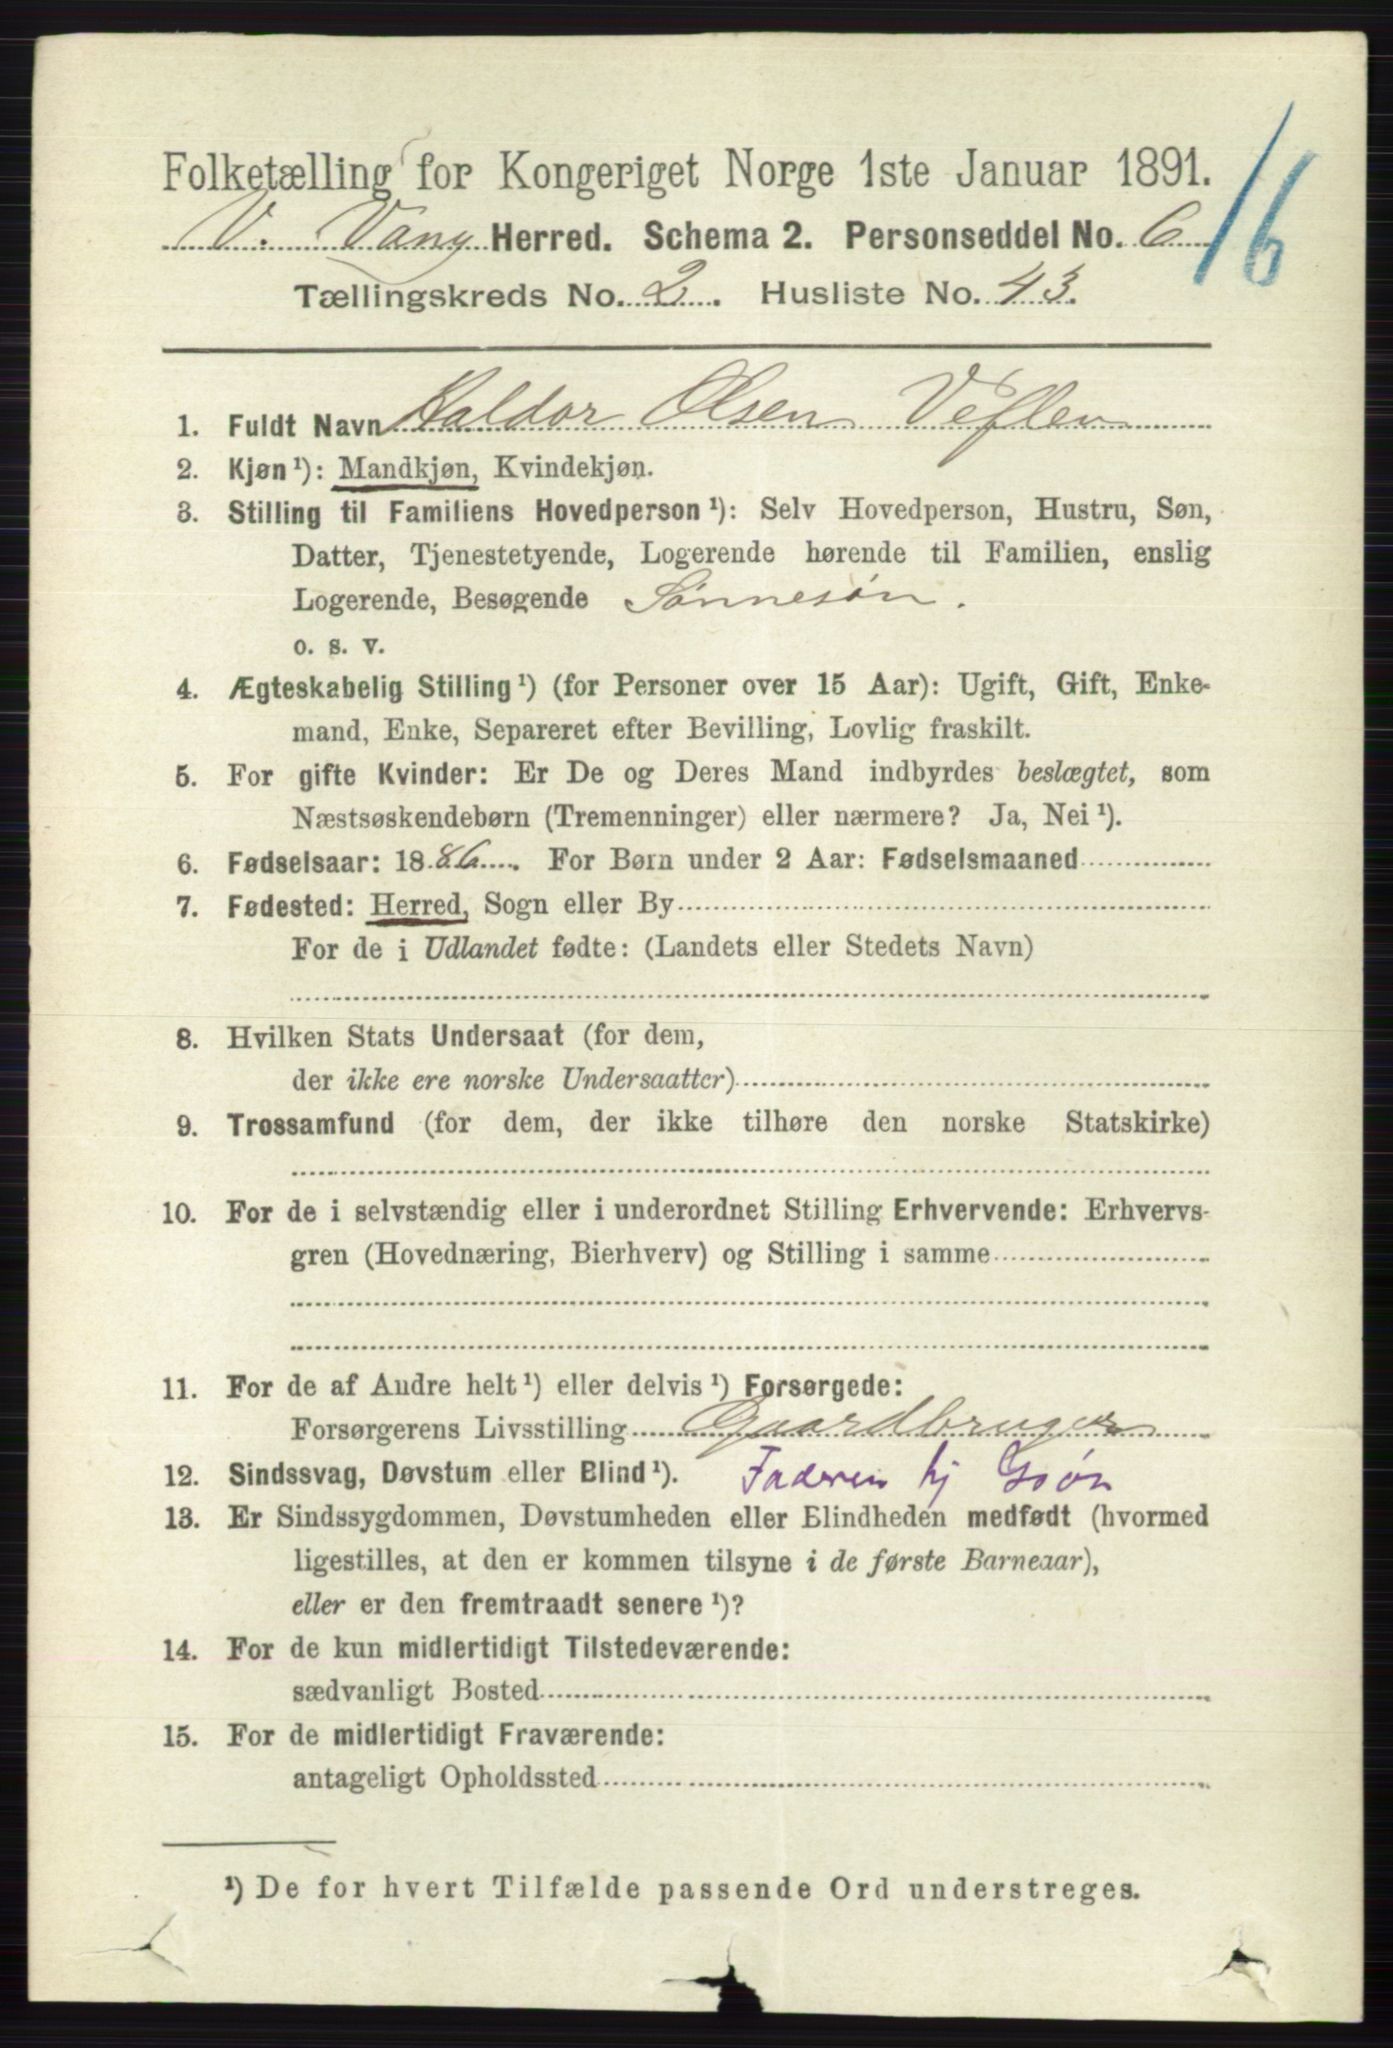 Folketælling for Kongeriget Norge 1ste Januar 1891.
16
V. Vang Herred. Schema 2. Personseddel No. 6
Tællingskreds No. 2. Husliste No. 43.
1. Fuldt Navn Haldor Olsen Veflen
2. Kjøn ¹): Mandkjøn, Kvindekjøn.
3. Stilling til Familiens Hovedperson ¹): Selv Hovedperson, Hustru, Søn,
Datter, Tjenestetyende, Logerende hørende til Familien, enslig
Logerende, Besøgende Sønnesøn.
o. s. v.
4. Ægteskabelig Stilling ¹) (for Personer over 15 Aar): Ugift, Gift, Enke-
mand, Enke, Separeret efter Bevilling, Lovlig fraskilt.
5. For gifte Kvinder: Er De og Deres Mand indbyrdes beslægtet, som
Næstsøskendebørn (Tremenninger) eller nærmere? Ja, Nei ¹).
6. Fødselsaar: 1886. For Børn under 2 Aar: Fødselsmaaned
7. Fødested: Herred, Sogn eller By
For de i Udlandet fødte: (Landets eller Stedets Navn)
8. Hvilken Stats Undersaat (for dem,
der ikke ere norske Undersaatter)
9. Trossamfund (for dem, der ikke tilhøre den norske Statskirke)
10. For de i selvstændig eller i underordnet Stilling Erhvervende: Erhvervs-
gren (Hovednæring, Bierhverv) og Stilling i samme
11. For de af Andre helt ¹) eller delvis ¹) Forsørgede:
Forsørgerens Livsstilling Gaardbruger
12. Sindssvag, Døvstum eller Blind ¹). Faderen hj Gsøn
13. Er Sindssygdommen, Døvstumheden eller Blindheden medfødt (hvormed
ligestilles, at den er kommen tilsyne i de første Barneaar),
eller er den fremtraadt senere ¹)?
14. For de kun midlertidigt Tilstedeværende:
sædvanligt Bosted
15. For de midlertidigt Fraværende:
antageligt Opholdssted
¹) De for hvert Tilfælde passende Ord understreges.